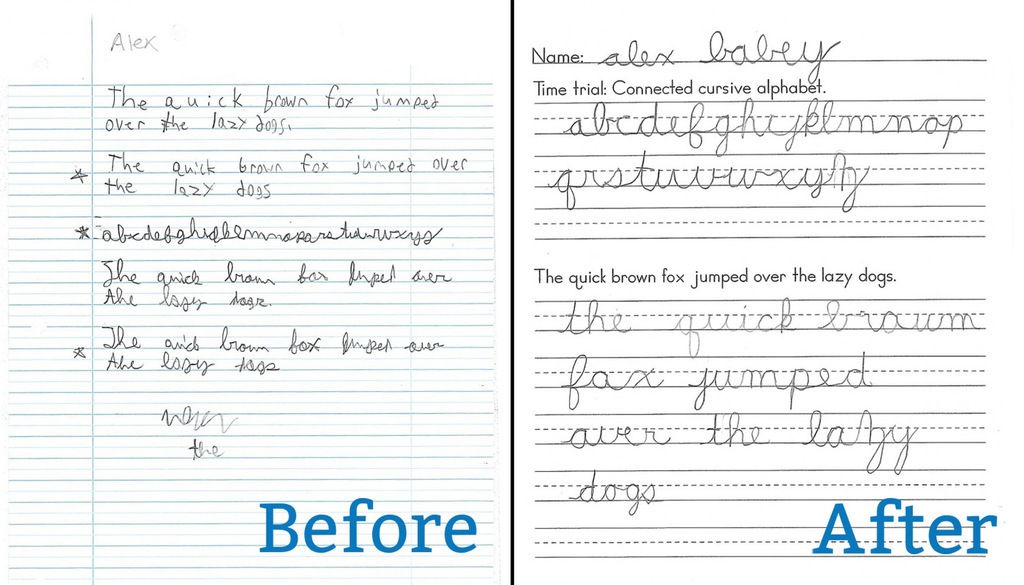 Alex
The quick brown fox jumped
over the lazy dogs.
* The quick brown fox jumped over
the lazy dogs
The quick brown fox jumped over
the lazy dogs.
* The quick brown fox jumped over
the lazy dogs
the
Before
Name: alex babey
Time trial: Connected cursive alphabet.
abcdefghijklmnop
qrstuvwxyz
The quick brown fox jumped over the lazy dogs.
the quick brown
fox jumped
over the lazy
dogs
After